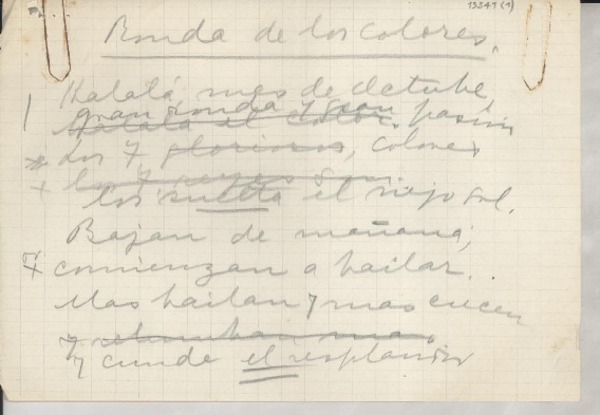 13341 (1)
Ronda de los colores.
Halalá, mes de Octubre,
gran ronda y gran pasión
Halalá el color.
dos y gloriosos, colores
los 7 reyes son.
los suelta el viejo sol.
Bajan de mañana,
comienzan a bailar.
Mas bailan y mas crecen
y relumbran mas
y cunde el resplandor